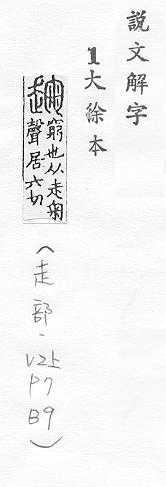 說文解字
1大徐本
趜
窮也从走匊
聲居六切
(走部-V2上P7B9)